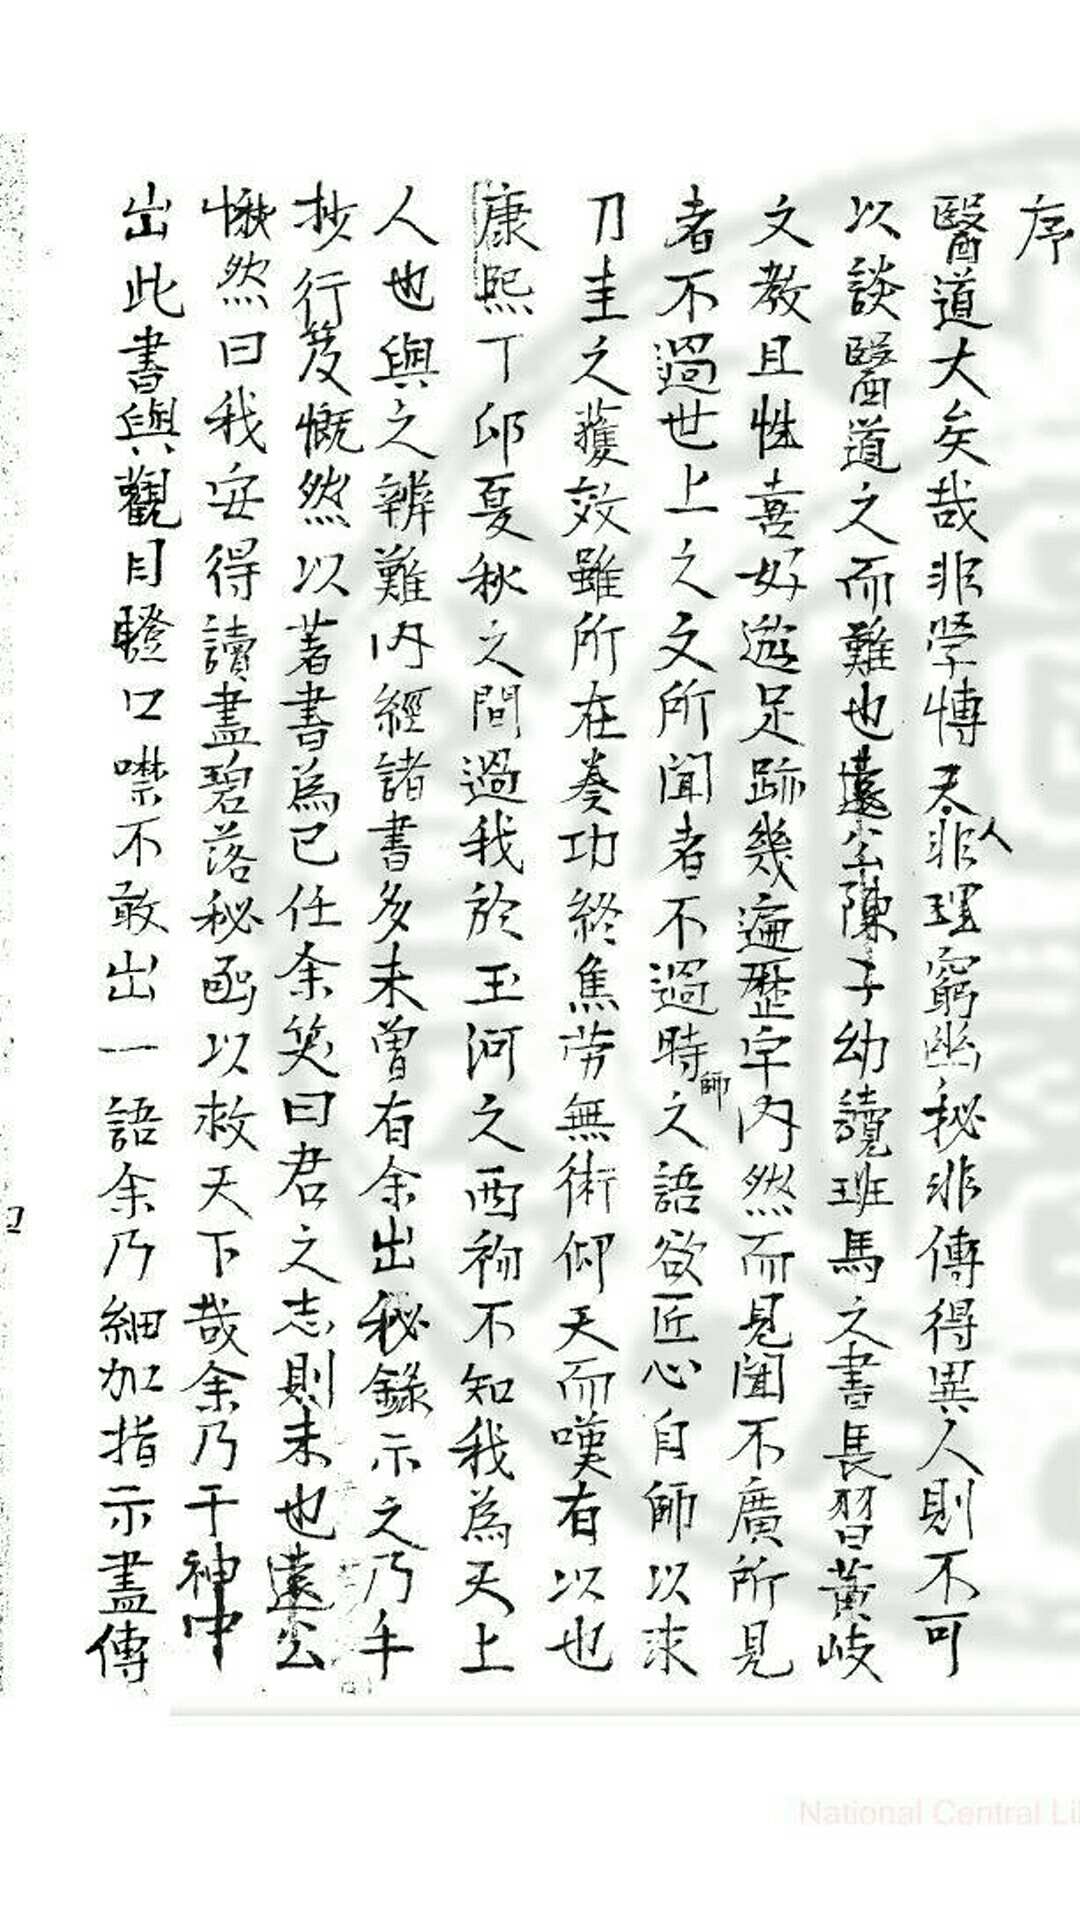 序
醫道大矣哉非學博天人非理窮幽秘非傳得異人則不可
以談醫道之而難也遠公陳子幼讀班馬之書長習黃岐
文教且性喜好遊足跡幾遍歷宇內然而見聞不廣所見
者不過世上之文所聞者不過時師之語欲匠心自師以求
刀圭之獲效雖所在奏功終焦勞無術仰天而嘆有以也
康熙丁邱夏秋之間過我於玉河之西初不知我為天上
人也與之辨難內經諸書多未曾有余出秘錄示之乃手
抄行笈慨然以著書為己任余笑曰君之志則未也遠公
愀然曰我安得讀盡碧落秘函以救天下哉余乃于神中
出此書與觀目瞪口噤不敢出一語余乃細加指示盡傳
National Central Li